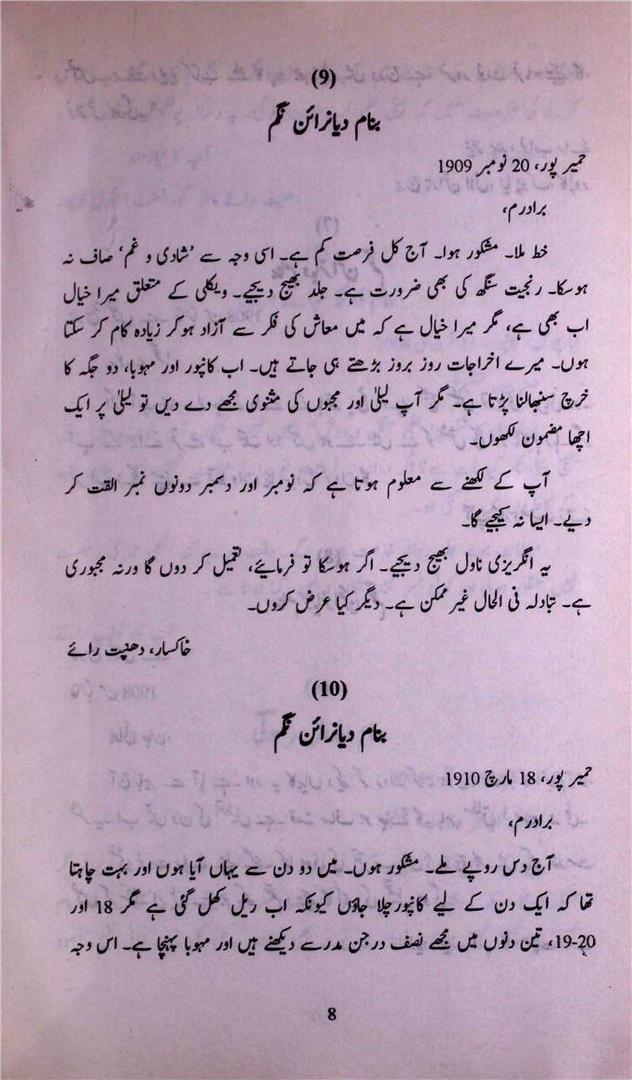 (9)
بنام دیا نرائن نگم
حمیر پور، 20 نومبر 1909
برادرم،
خط ملا۔ مشکور ہوا۔ آج کل فرصت کم ہے۔ اسی وجہ سے ’شادی و غم‘ صاف نہ
ہوسکا۔ رنجیت سنگھ کی بھی ضرورت ہے۔ جلد بھیج دیجیے۔ ویکلی کے متعلق میرا خیال
اب بھی ہے، مگر میرا خیال ہے کہ میں معاش کی فکر سے آزاد ہوکر زیادہ کام کر سکتا
ہوں۔ میرے اخراجات روز بروز بڑھتے ہی جاتے ہیں۔ اب کانپور اور مہوبا، دو جگہ کا
خرچ سنبھالنا پڑتا ہے۔ مگر آپ لیلیٰ اور مجبوں کی مثنوی مجھے دے دیں تو لیلیٰ پر ایک
اچھا مضمون لکھوں۔
آپ کے لکھنے سے معلوم ہوتا ہے کہ نومبر اور دسمبر دونوں نمبر القت کر
دیے۔ ایسا نہ کیجیے گا۔
یہ انگریزی ناول بھیج دیجیے۔ اگر ہوسکا تو فرمائیے، تعمیل کر دوں گا ورنہ مجبوری
ہے۔ تبادلہ فی الحال غیر ممکن ہے۔ دیگر کیا عرض کروں۔
خاکسار، دھنپت رائے
(10)
بنام دیا نرائن نگم
حمیر پور، 18 مارچ 1910
برادرم،
آج دس روپے ملے۔ مشکور ہوں۔ میں دو دن سے یہاں آیا ہوں اور بہت چاہتا
تھا کہ ایک دن کے لیے کانپور چلا جاؤں کیونکہ اب ریل کھل گئی ہے مگر 18 اور
19-20، تین دنوں میں مجھے نصف درجن مدرسے دیکھنے ہیں اور مہوبا پہنچا ہے۔ اس وجہ
8